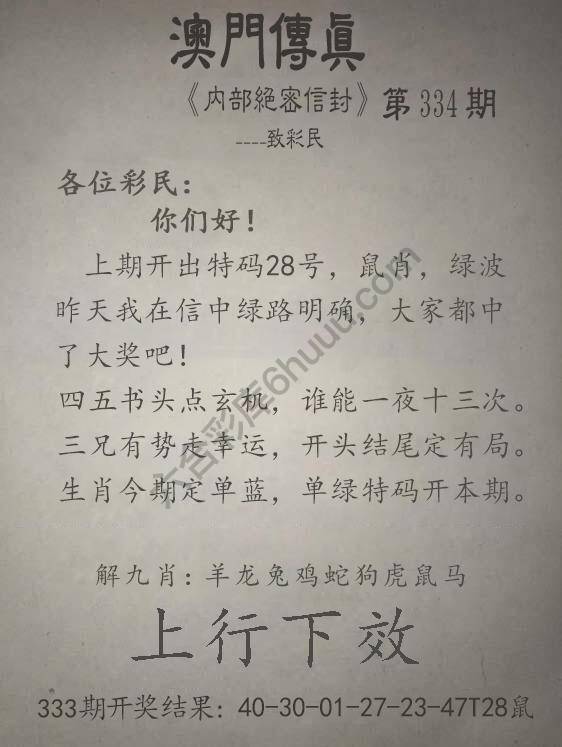 澳門傳真
《内部絕密信封》第334期
----致彩民
各位彩民：
你们好！
上期开出特码28号，鼠肖，绿波
昨天我在信中绿路明确，大家都中
了大奖吧！
四五书头点玄机，谁能一夜十三次。
三兄有势走幸运，开头结尾定有局。
生肖今期定单蓝，单绿特码开本期。
解九肖：羊龙兔鸡蛇狗虎鼠马
上行下效
333期开奖结果：40-30-01-27-23-47T28鼠
六合彩库6huuu.com